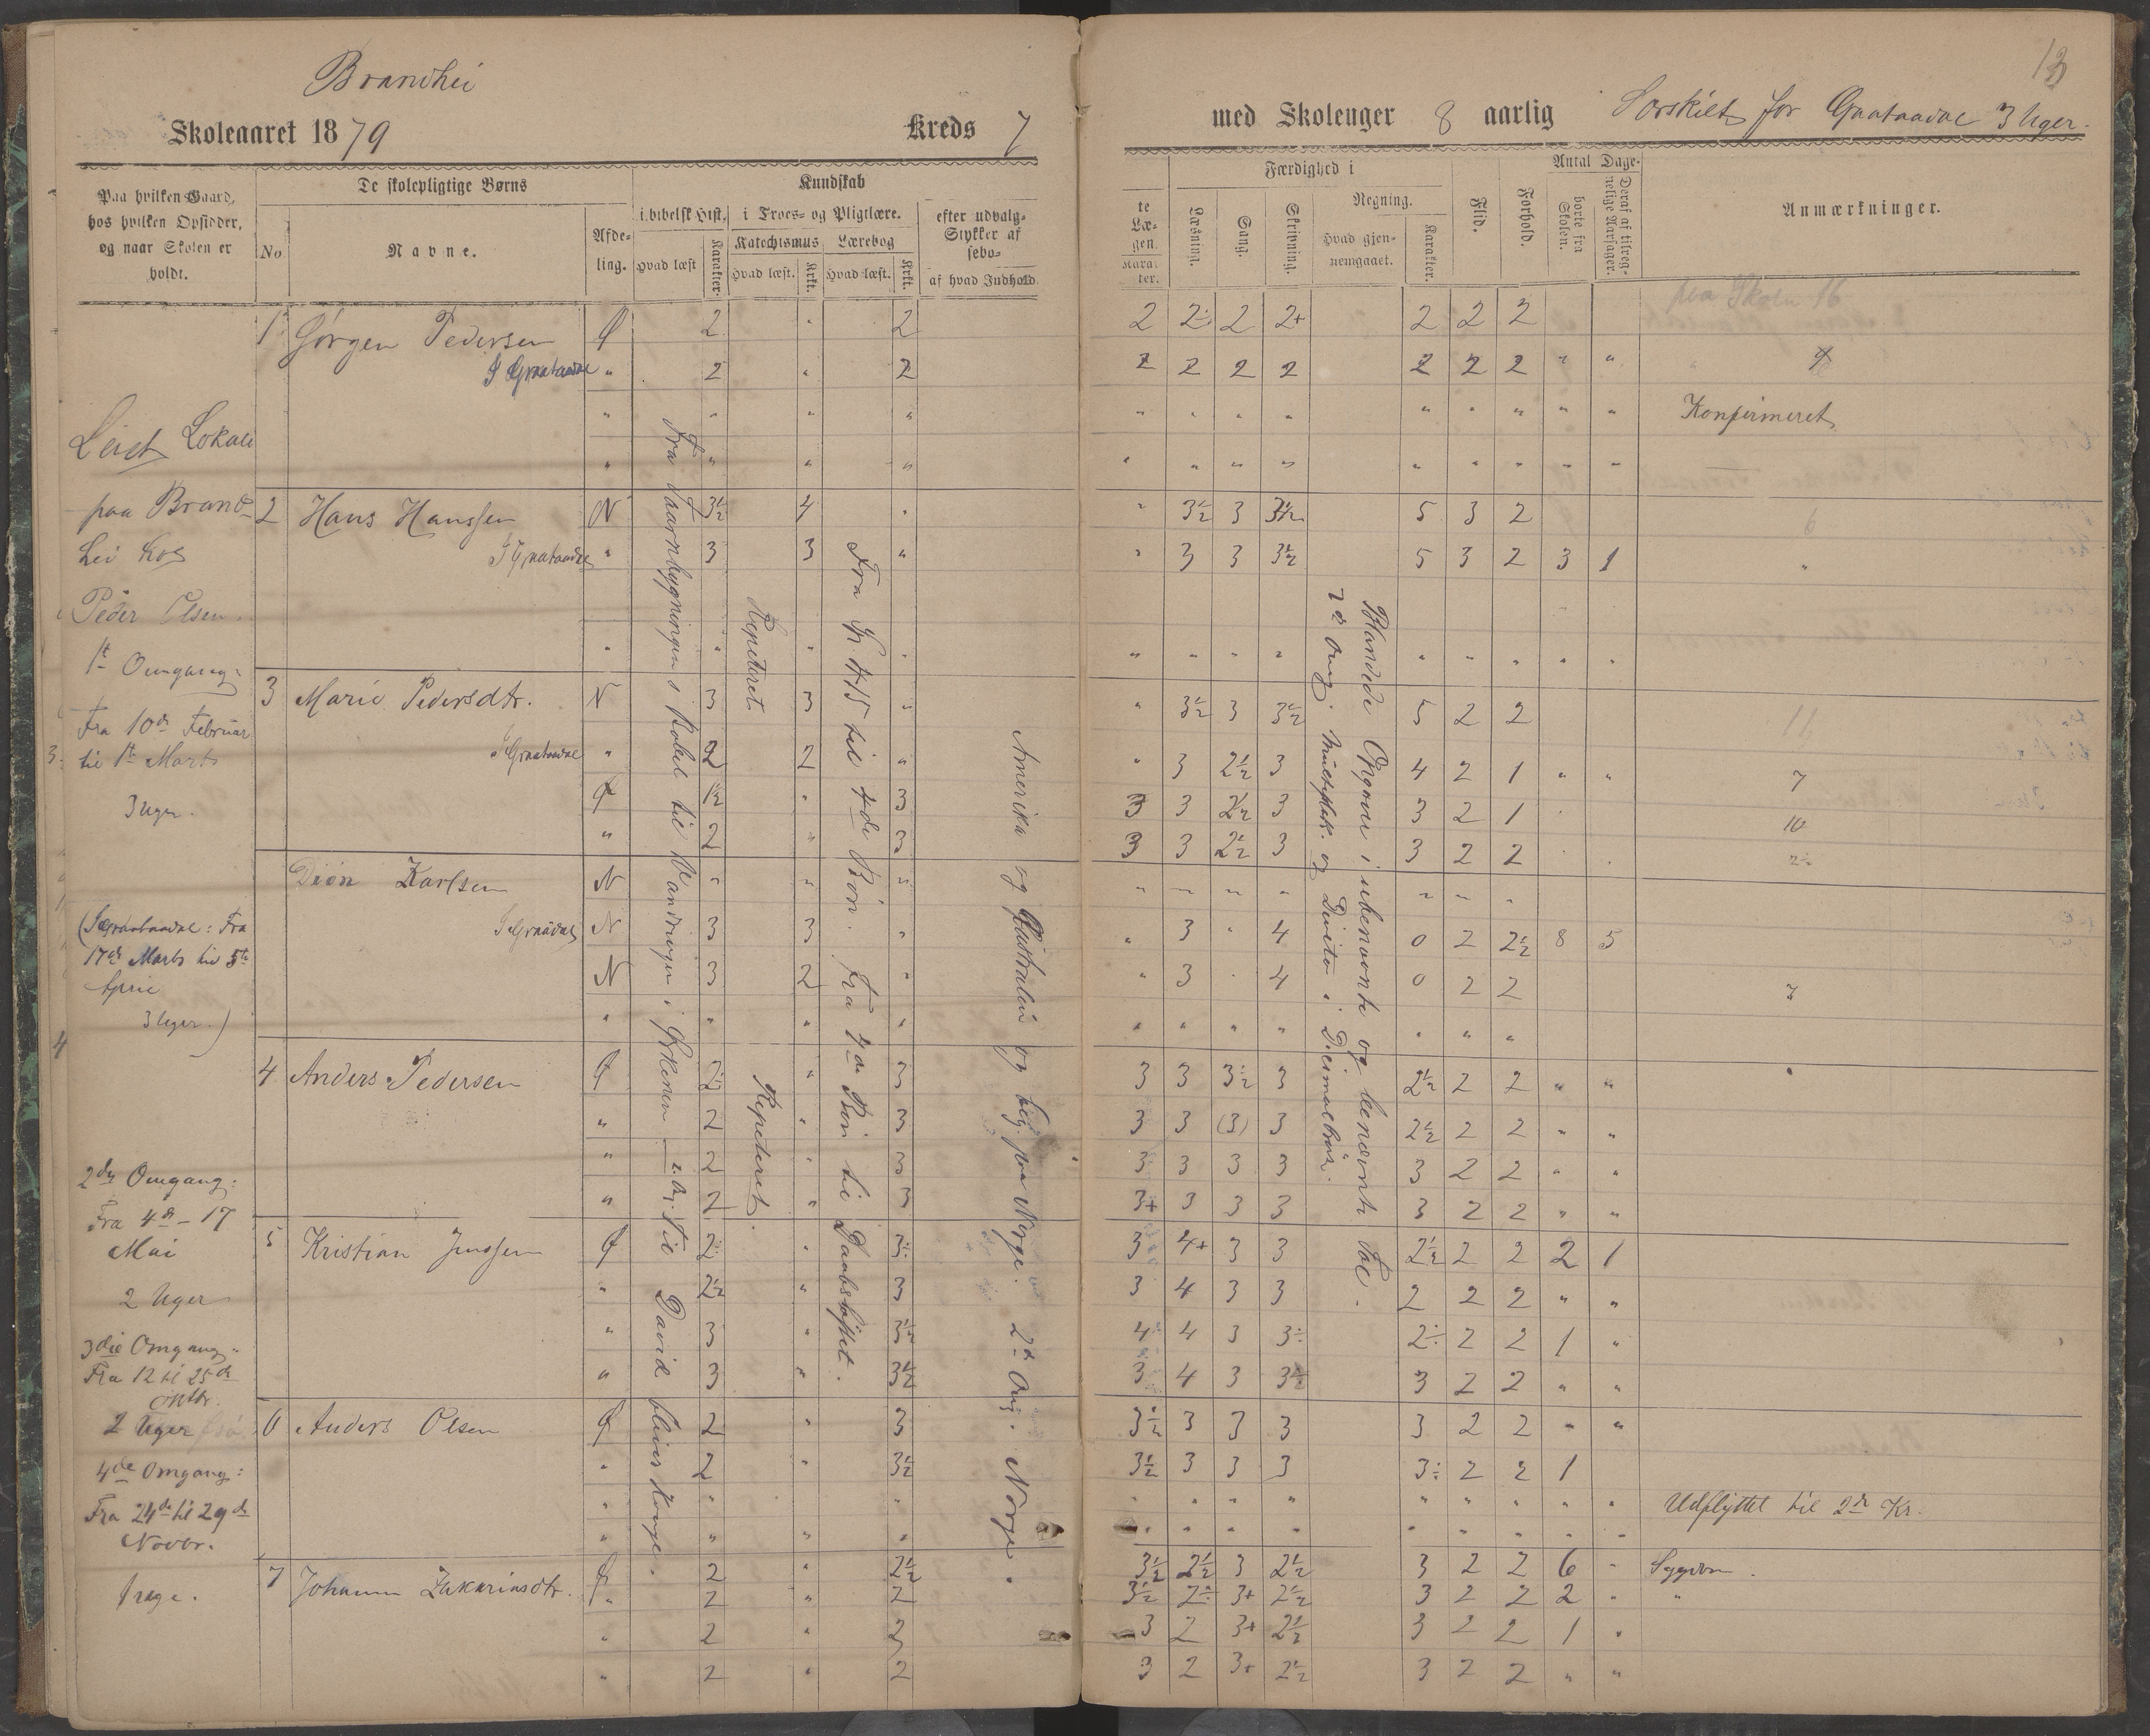 Brandhei
Skoleaaret 1879 Kreds 7
Paa hvilken Gaard, hos hvilken Opsidder, og naar Skolen er holdt.
De skolepligtige Børns
No
Navne.
Afdeling.
Kundskab
i bibelsk Hist.
Hvad læst
Karakter.
i Troes- og Pligtlære.
Katechismus
Hvad læst.
Krkt.
Lærebog
Hvad læst.
Krkt.
efter udvalg-
Stykker af
sebo-
af hvad Indhold
Leiet Lokale
paa Brand-
hei hos
Peder Olsen.
1st Omgang:
Fra 10de Februar
til 1st Marts
3 Uger.
(I Graataadal: Fra
17de Marts til 5te
April
3 Uger.)
2den Omgang:
Fra 4de - 17
Mai
2 Uger
3die Omgang:
Fra 12 til 25de
Oktbr.
2 Uger
4de Omgang:
Fra 24de til 29de
Novbr.
1 uge.
1 Jørgen Pedersen Ø 2 " 2
I Graataadal " 2 " 2
2 Hans Hanssen N 3½ 4 "
I Graataadal " 3 3 "
3 Marie Pedersdtr. N 3 3 "
I Graataadal " 2 2 "
Ø 1½ " 3
" 2 " 3
Karlsen N " " "
N 3 3 "
N 3 2 "
4 Anders Pedersen Ø 2 " 3
" 2 " 3
" 2 " 3
" 2 " 3
5 Kristian Jenssen Ø 2÷ " 3÷
" 2½ " 3
" 3 " 3½
" 3 " 3½
6 Anders Olsen Ø 2 " 3
" 2 " 3½
7 Johanne Zakariasdtr. Ø 2 " 2½
" 2 " 2
" 2 " 2
" 2 " 2
Fra Taarnbygningen i Babel til Vandringen i Ørkenen - 2. Og. Til David bliver Konge.
Repeteret
Repeteret.
til 4de Bøn. Fra 4de Bøn til Daabsløftet.
Amerika og Australien og beg. paa Norge. 2d Omg. Norge.
13
med Skoleuger 8 aarlig Særskilt for Graataadal 3 Uger.
te
Læ-
gen.
Karakter.
Færdighed i
Læsning.
Sang.
Skrivning.
Regning.
Hvad gjennemgaaet.
Karakter.
Flid.
Forhold.
Antal Dage.
borte fra Skolen.
Deraf af tilregnelige Aarsager.
Anmærkninger.
paa Skolen 16
2 2÷ 2 2+ 2 2 2
2 2 2 2 2 2 2 " "
Konfirmeret
" 3½ 3 3½ 5 3 2 6
" 3 3 3½ 5 3 2 3 1 "
" 3½ 3 3½ 5 2 2 11
" 3 2½ 3 4 2 1 " " 7
3 3 2½ 3 3 2 1 10
3 3 2½ 3 3 2 2
" 3 " 4 0 2 2½ 8 5
" 3 " 4 0 2 2
3 3 3½ 3 2½ 2 2 " "
3 3 (3) 3 2½ 2 2 " "
3 3 3 3 3 2 2 " "
3+ 3 3 3 3 2 2 " "
3 4+ 3 3 2½ 2 2 2 1
3 4 3 3 2 2 2 " "
4 4 3 3÷ 2÷ 2 2 1 "
3 4 3 3½ 3 2 2 " "
3½ 3 3 3 3 2 2 " "
3½ 3 3 3 3÷ 2 2 1
Udflyttet til 2de Kr.
3½ 2½ 3 2½ 3 2 2 6 " Sygdom.
3½ 2÷ 3+ 2½ 3 2 2 2 " "
3 2 3+ 2½ 3 2 2 1 "
3 2 3+ 2½ 3 2 2 " "
Blandede Opgaver i ubenævnte og benævnte Tal.
2de Omg. Multiplik. og Division i Decimalbrøk.